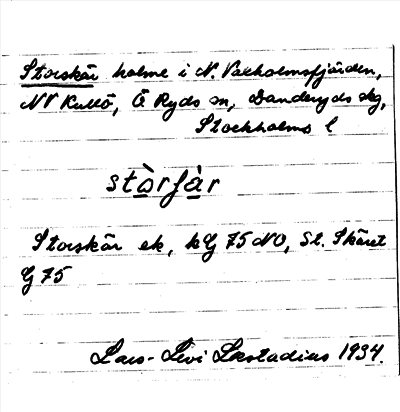 Storskär holme i N. Vaxholmsfjärden,
NV Kullö, Ö Ryds sn, Danderyds skg,
Stockholms l
stòrʃàr
Storskär ek, kG 75 NO, St. Skäret
G 75
Lars-Levi Læstadius 1934.